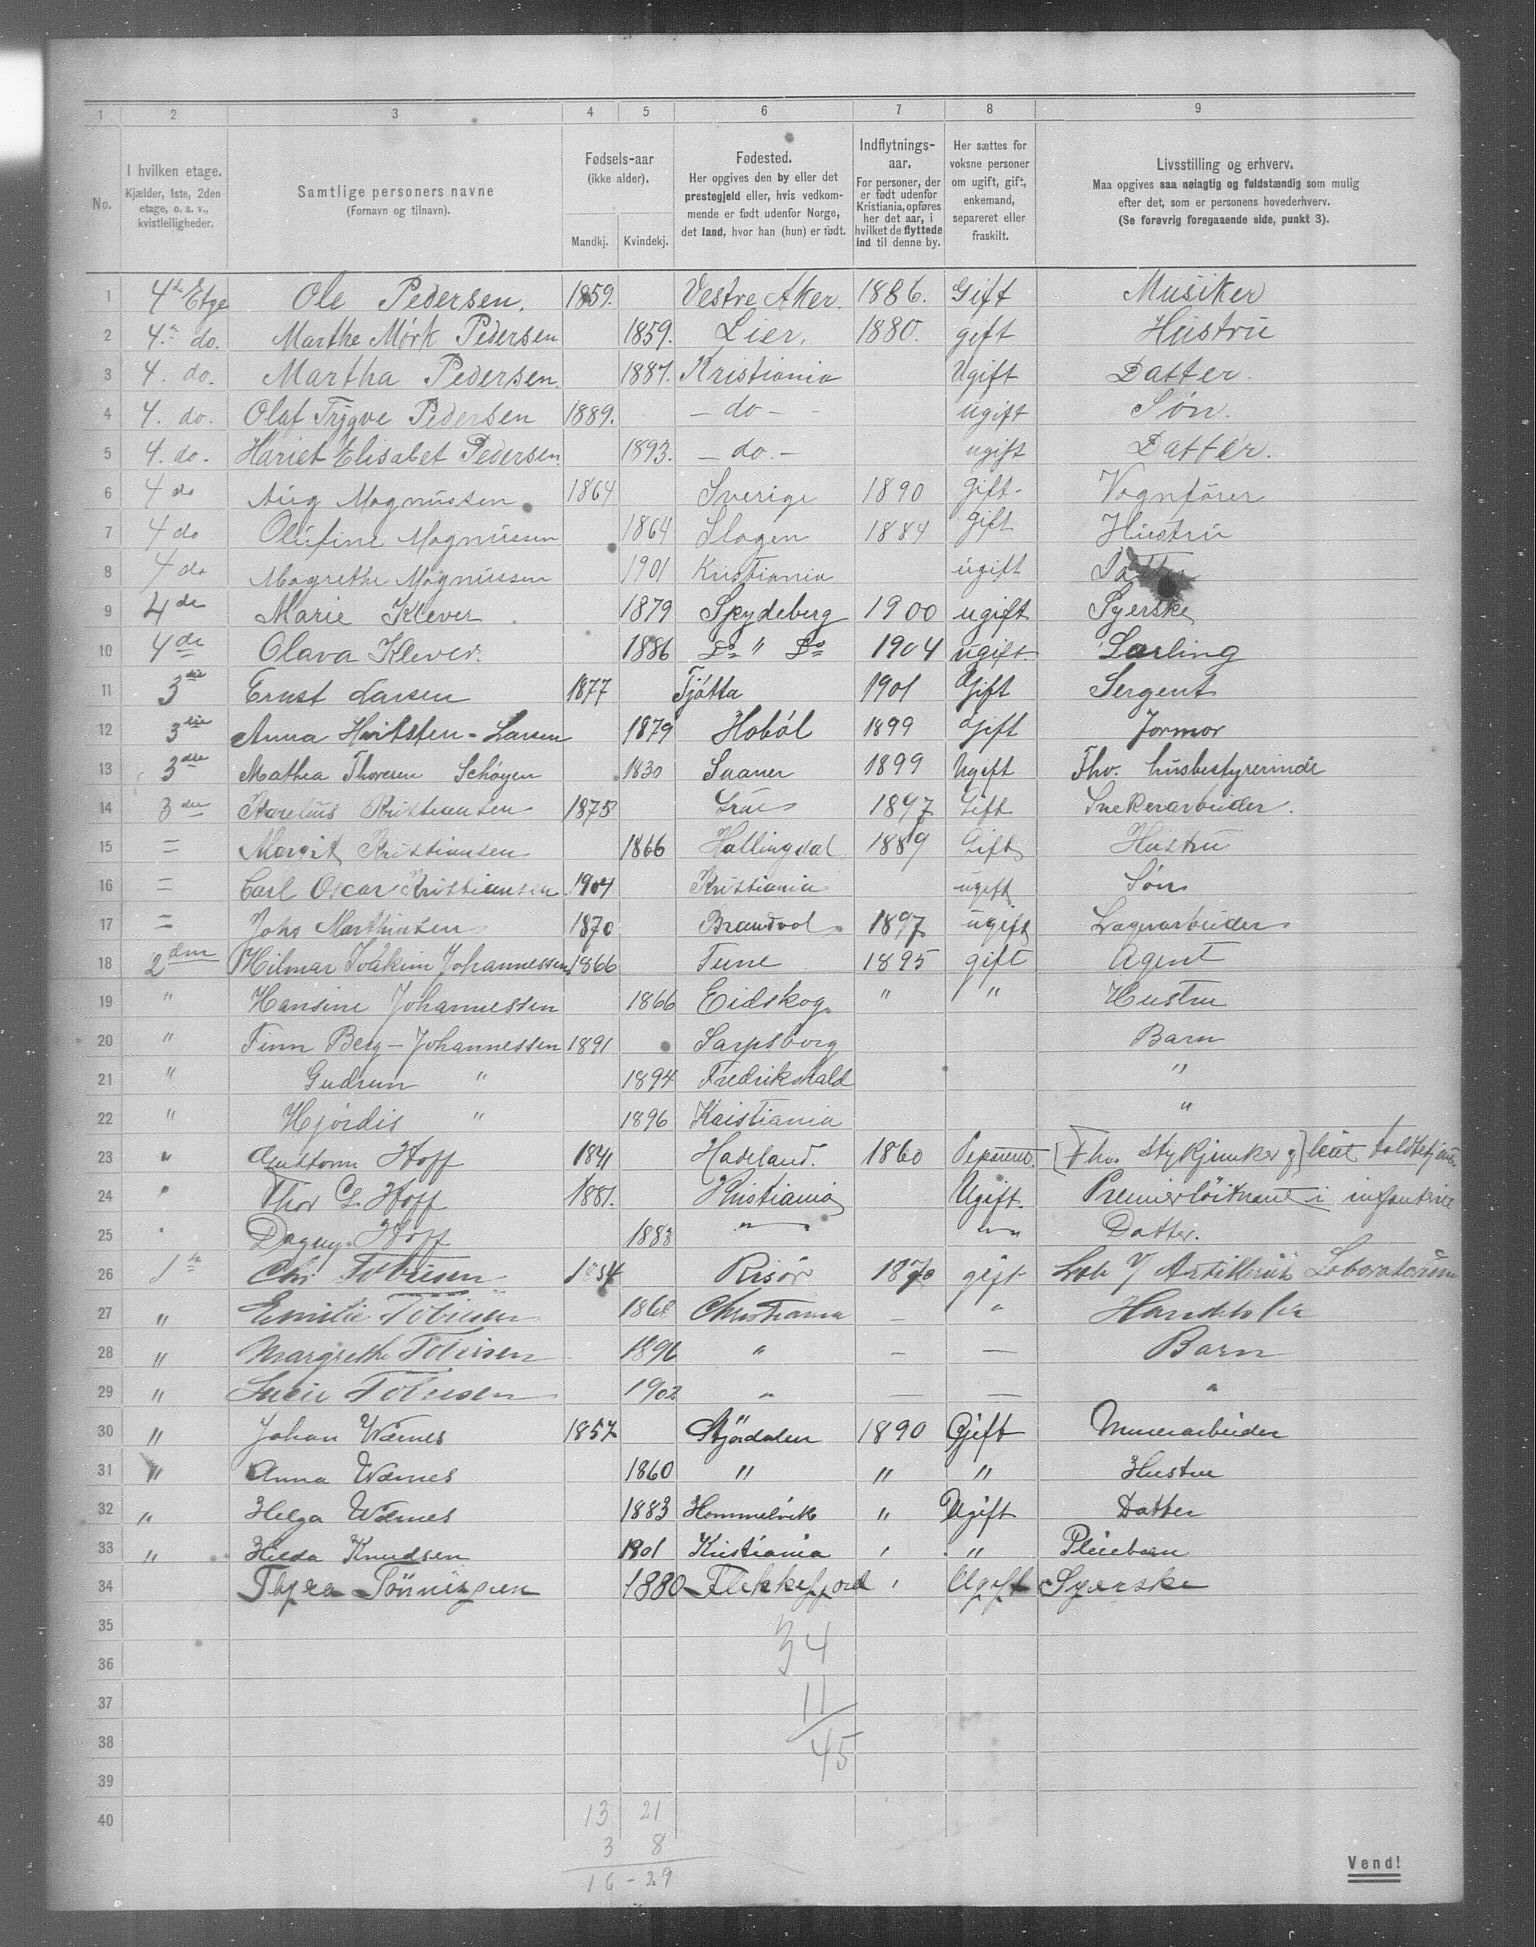 1 2 3 4 5 6 7 8 9
No.
I hvilken etage.
Kjælder, 1ste, 2den
etage, o. s. v.,
kvistleiligheder.
Samtlige personers navne
(Fornavn og tilnavn).
Fødsels-aar
(ikke alder).
Mandkj. Kvindekj.
Fødested.
Her opgives den by eller det
prestegjeld eller, hvis vedkom-
mende er født udenfor Norge,
det land, hvor han (hun) er født.
Indflytnings-
aar.
For personer, der
er født udenfor
Kristiania, opføres
her det aar, i
hvilket de flyttede
ind til denne by.
Her sættes for
voksne personer
om ugift, gift,
enkemand,
separeret eller
fraskilt.
Livsstilling og erhverv.
Maa opgives saa nøiagtig og fuldstændig som mulig
efter det, som er personens hovederhverv.
(Se forøvrig foregaaende side, punkt 3).
1 4d Etge Ole Pedersen. 1859. Vestre Aker. 1886. Gift Musiker
2 4. do. Marthe Mörk Pedersen 1859. Lier. 1880. gift Hustru
3 4. do. Martha Pedersen. 1887. Kristiania Ugift Datter.
4 4. do. Olaf Trygve Pedersen 1889. – do – ugift Søn.
5 4. do. Hariet Elisabet Pedersen. 1893. – do. – ugift Datter.
6 4 do Aug Magnussen 1864 Sverige 1890 Gift. Vognfører
7 4 do Olufine Magnussen 1864 Slagen 1884 Gift Hustru
8 4 do Magrethe Magnussen 1901 Kristiania ugift
9 4 de Marie Klever 1879 Spydeberg 1900 ugift Syerske
10 4 de Olava Klever. 1886 Do " Do 1904 ugift. Lærling
11 3die Ernst Larsen 1877 Tjötta 1901 Gift Sergent
12 3die Anna Hvitsten - Larsen 1879 Hoböl 1899 Gift Jormor
13 3die Mathea Thoresen Schøyen 1830 Saaner 1899 Ugift Fhv. husbestyrerinde
14 3die Kristiansen 1875 1897 Gift Snekerarbeider.
15 = Margit Kristiansen 1866 Hallingdal 1889 Gift Hustru
16 = Carl Oscar Kristiansen 1904 Kristiania ugift Søn
17 = Johs Marthinsen 1870 Brandvol 1897 ugift Lagerarbeider
18 2den Hilmar Joakim Johannessen 1866 Tune 1895 gift Agent
19 " Hansine Johannessen 1866 Eidskog " " Hustru
20 " Finn Berg - Johannessen 1891 Sarpsborg Barn
21 " Gudrun " 1894 Fredrikshald "
22 " Hjørdis " 1896 Kristiania "
23 " Guttorm Hoff 1841 Hadeland. 1860 Separeret. [Fhv. Stykjunker og]
24 " Thor G. Hoff 1881. Kristiania Ugift. Premierløitnant i infanteriet
25 " Dagny Hoff 1883 " " Datter.
26 1ste Chr. Tobiesen 1854 Risør 1870 gift Lab V/ Artilleriets Laboratorium
27 " Emilie Tobiesen 1868 Christiania – "
28 " Margrethe Tobiesen 1896 " – – Barn
29 " Tobiesen 1902 " – – "
30 " Johan Wærnes 1857 Stjördalen 1890 Gift Murerarbeider
31 " Anna Wærnes 1860 " " " Hustru
32 " Helga Wærnes 1883 Hommelvik " Ugift Datter
33 " Hilda Knudsen 1901 Kristiania ' " Pleiebarn
34 Thyra Tönnesen 1880 Flekkefjord ' Ugift Syerske
35
36
37
38
39
40
34
11
45
13 21
3 8
16 - 29
Vend!